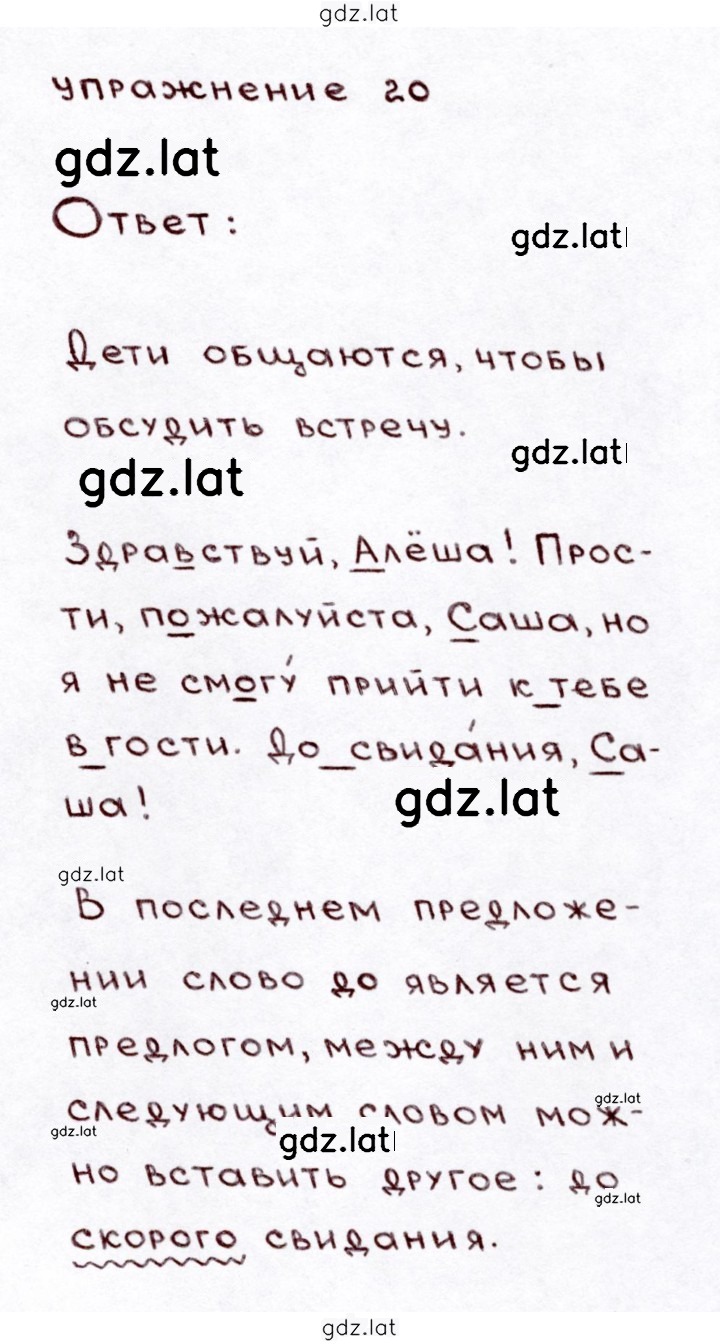 gdz.lat
упражнение 20
gdz.lat
Ответ:
gdz.lat
Дети общаются, чтобы
обсудить встречу.
gdz.lat
gdz.lat
Здравствуй, Алёша! Прос-
ти, пожалуйста, Саша, но
я не смогу́ прийти к_тебе
в_гости. До_свида́ния, Са-
ша!
gdz.lat
gdz.lat
В последнем предложе-
нии слово до является
gdz.lat
предлогом, между ним и
следующим словом мож-
gdz.lat
gdz.lat
gdz.lat
но вставить другое: до
gdz.lat
скорого свидания.
gdz.lat